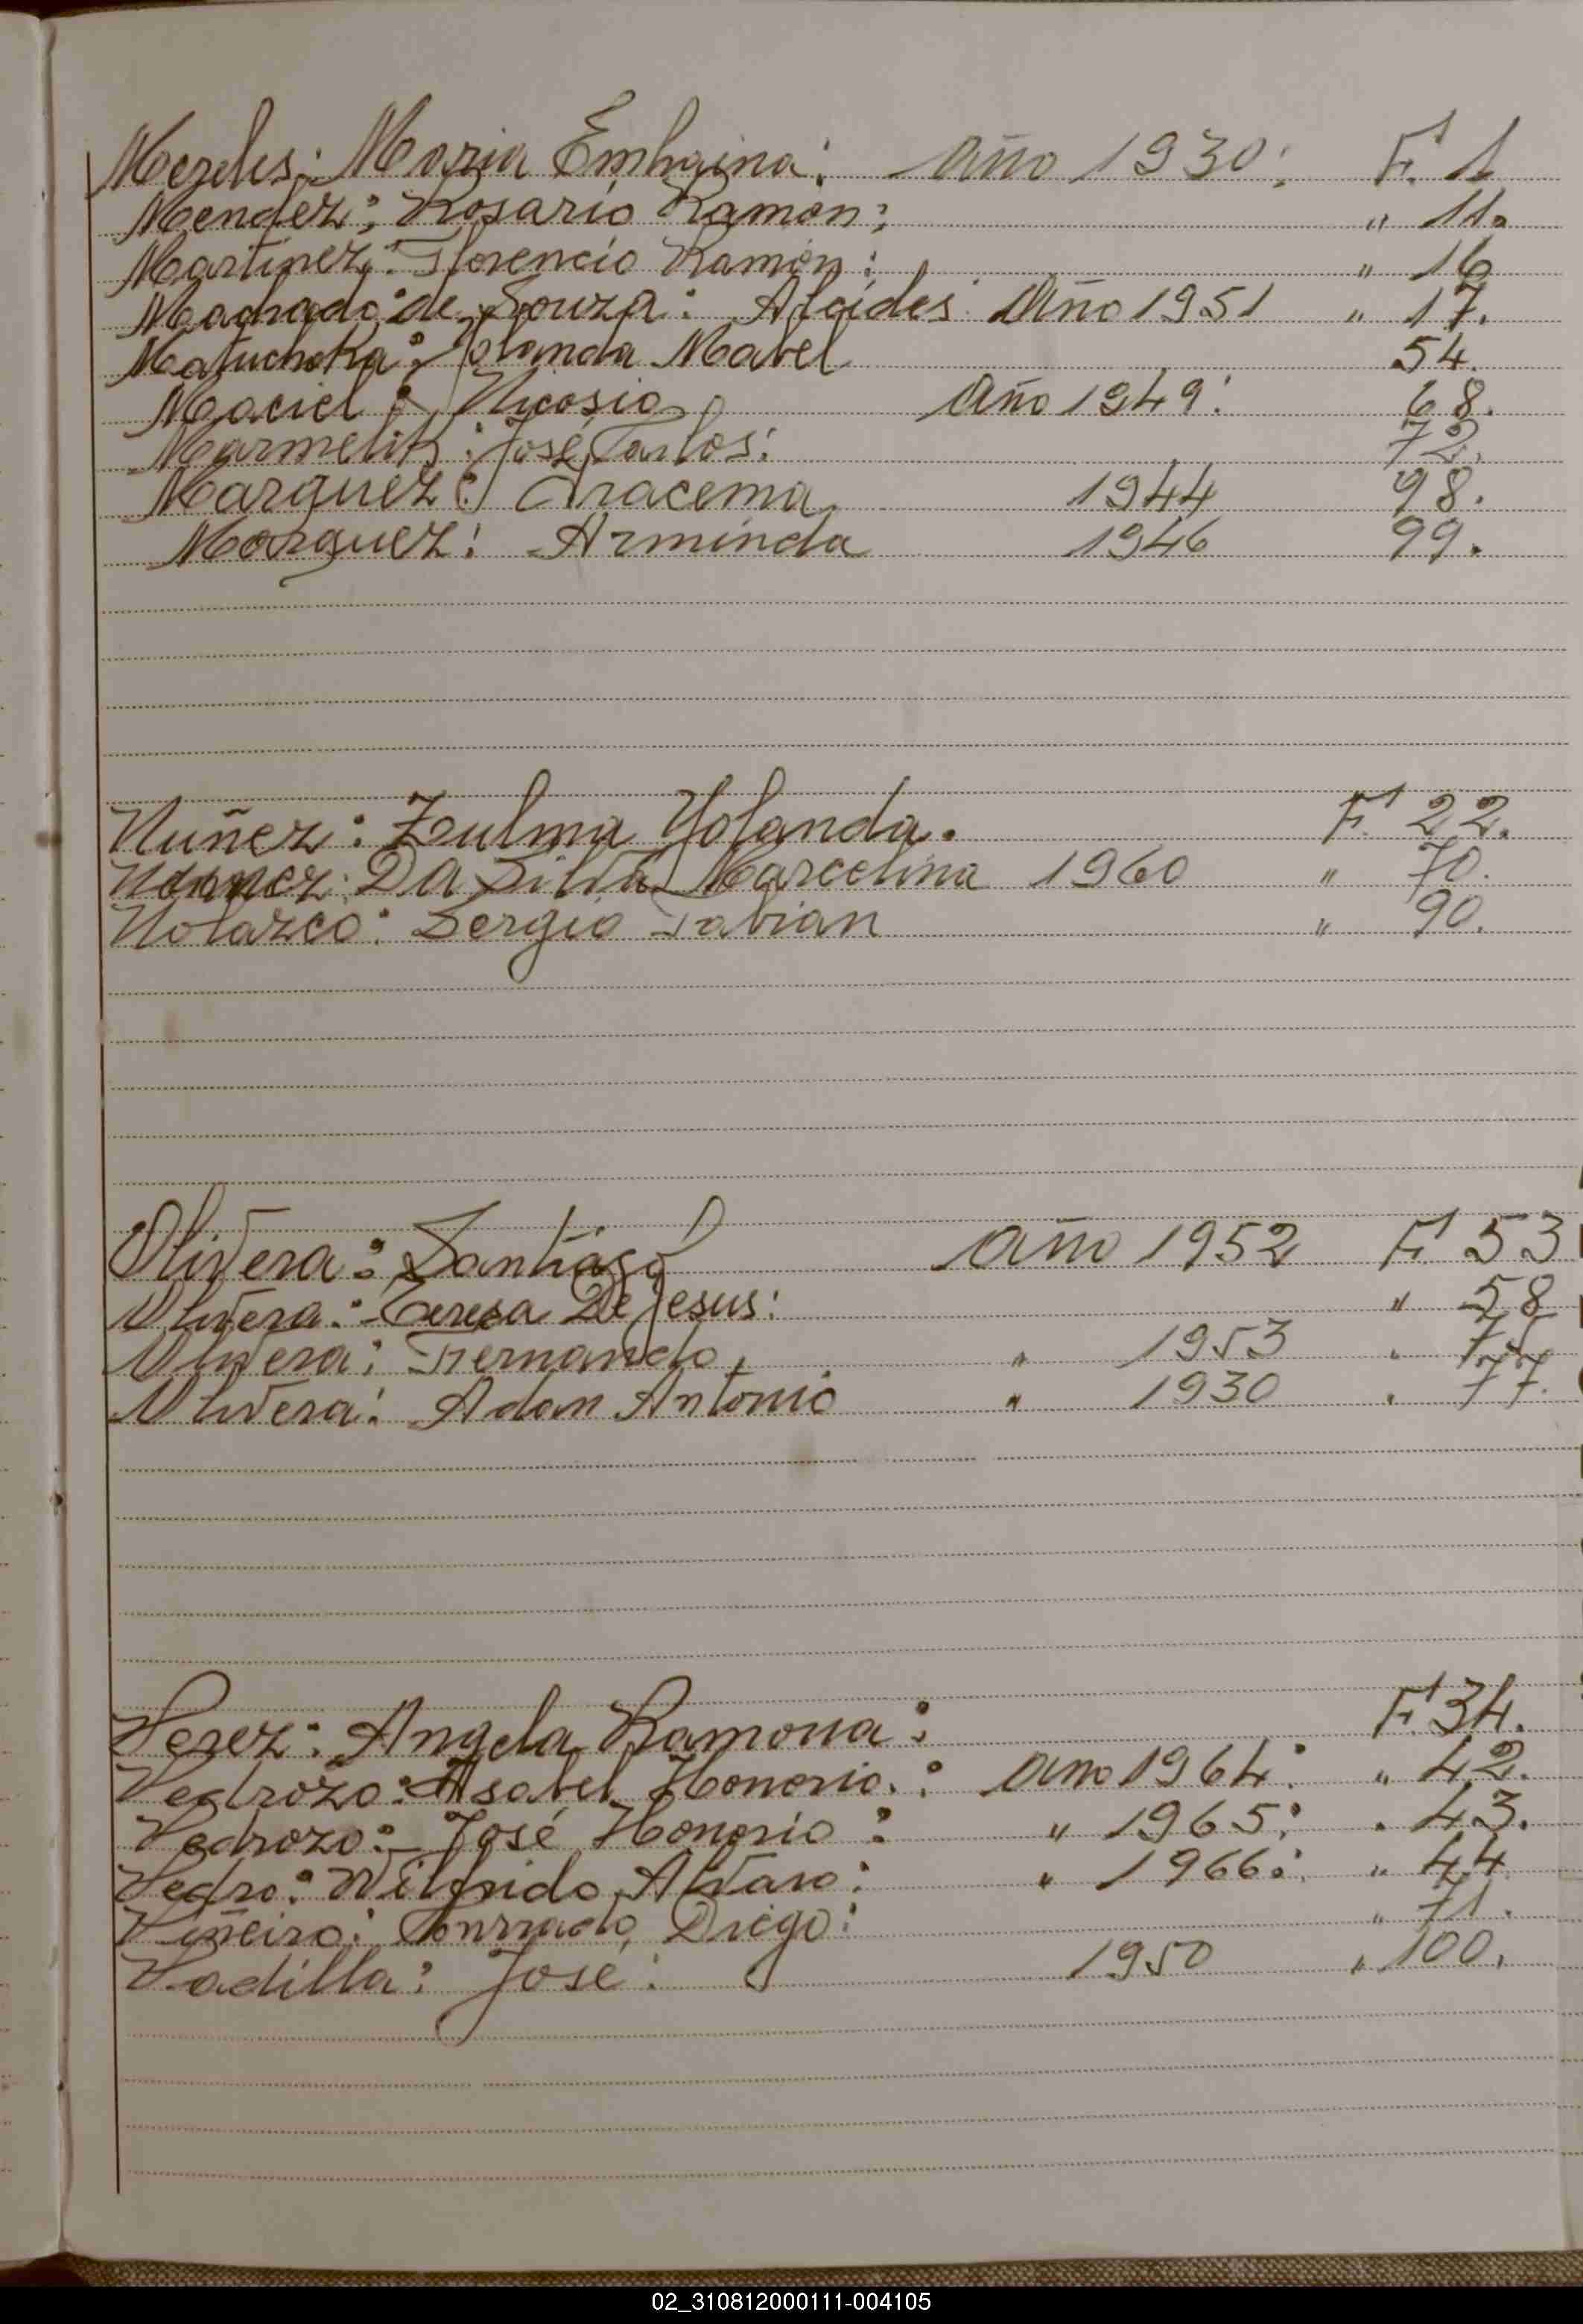 Mereles: Maria Emhgina: Año 1930: F. 1
Mendez: Rosario Ramon: " 11.
Martinez: Florencio Ramón: " 16
Machado de Souza: Alcides Año 1951 " 17.
Matuchoka: Jolanda Mabel 54.
Maciel: Nicosio Año 1949: 68.
Marmelik: José Carlos: 72.
Marquez: Aracema 1944 98.
Marquez: Arminda 1946 99.
Nuñez: Zulma Yolanda. F. 22.
Da Silva Marcelina 1960 " 70.
Nolazco: Sergio Fabian " 90.
Olivera: Santiago Año 1952 F. 53
Olivera: Teresa De Jesus: " 58
Olivera: Fernando, " 1953 "
Olivera: Adan Antonio " 1930 " 77.
Perez: Angela Ramona: F. 34.
Pedrozo: Asabel Honorio.: Año 1964: " 42.
Pedrozo: José Honorio: " 1965: " 43.
Pedro: Wilfrido Alvaro: " 1966: " 44
Piñeiro: Conrrado, Diego: " 71.
Padilla: Jose: 1950 " 100.
02_310812000111-004105